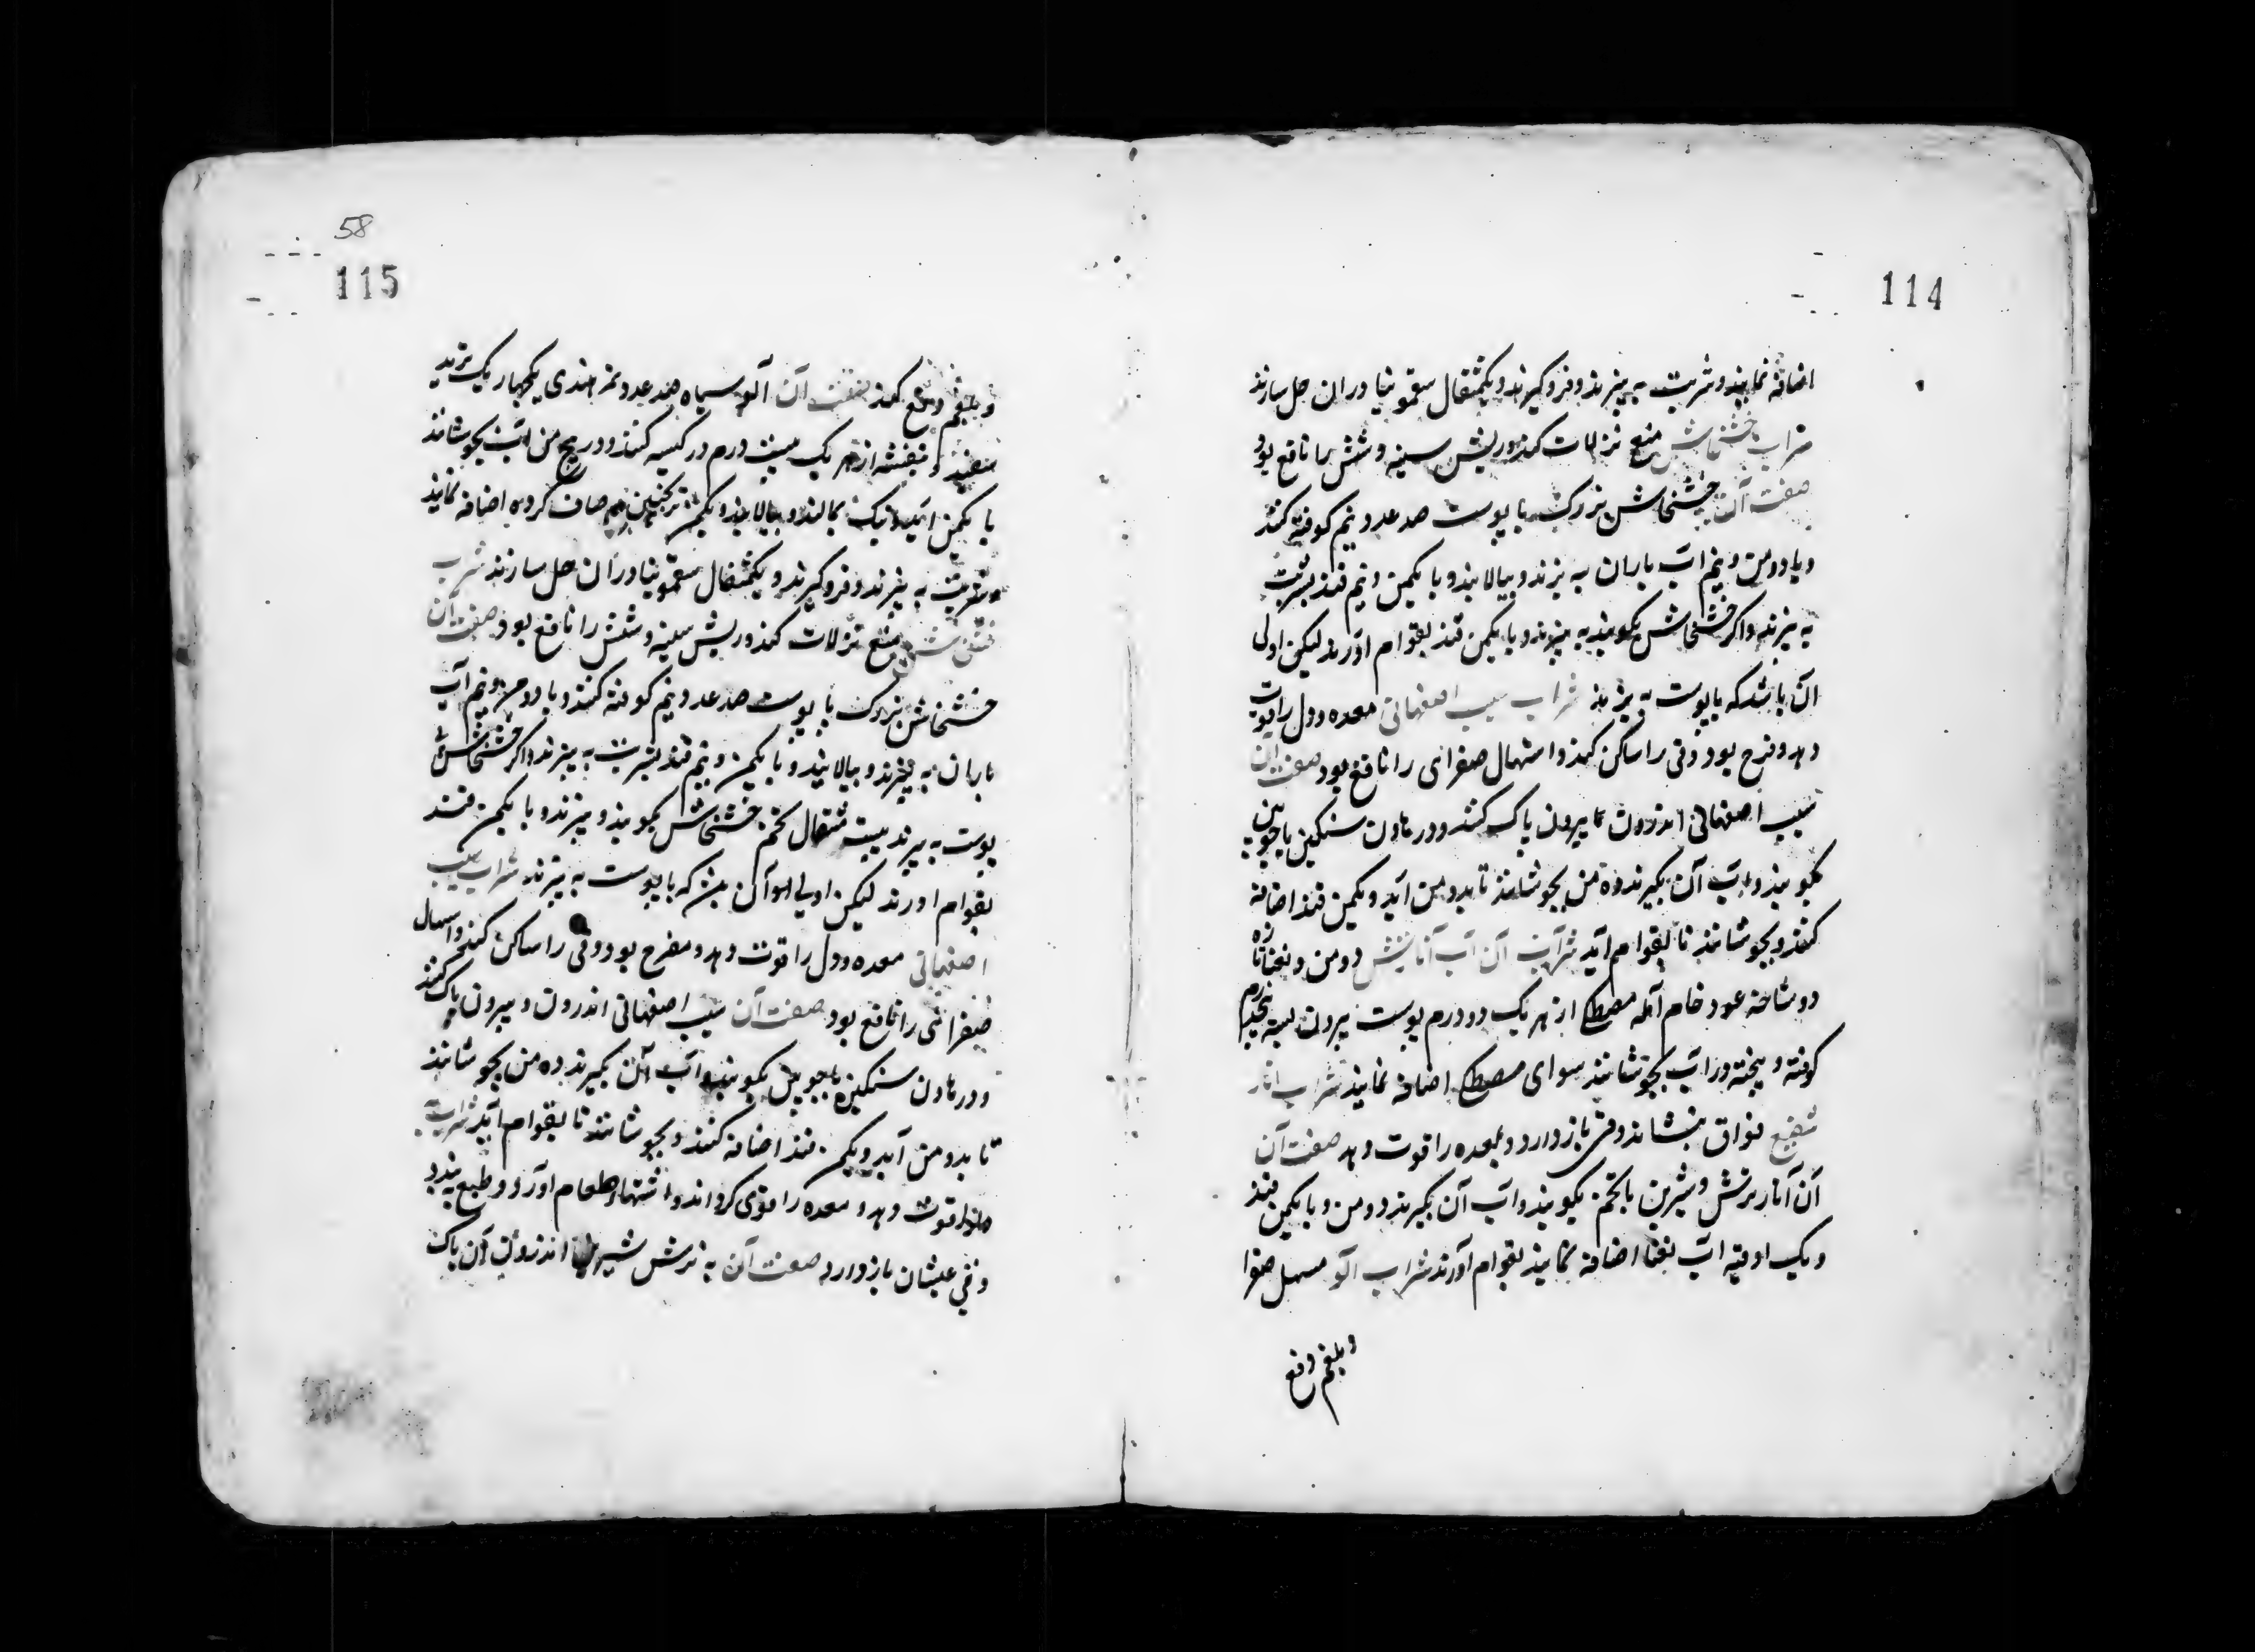 114
اضافه نمایند و شربت به پزند و فروگیرند و یکمثقال سقمونیا دران حل سازند
شراب خشخاش منع نزلات کند و ریش سینه و شش را نافع بود
صفت آن خشخاش بزرک با پوست صد عدد و نیم کوفته کنند
و با دومن و نیم اب باران به پزند و بپالایند و با یکمن و نیم قند بشربت
به پزند واکر خشخاش بکوبند به پزند و با یکمن قند بقوام آورند لیکن اولی
آن باشد که با پوست به پزند شراب سیب اصفهانی معده و دل را قوت
دهد و فرح بود و قی را ساکن کند و اسهال صفرای را نافع بود صفت آن
سیب اصفهانی اندرون تا بیرون پاک کنند و در هاون سنکین با چوبین
بکوبند و اب آن بکیرند ده من بجوشانند تا بدو من آید و یکمن قند اضافه
کنند و بجوشانند تا بقوام آید شراب آن آب آنار ترش دومن و نعنا تازه
دو شاخه عود خام آمله مصطکی از هر یک دو درم پوست بیرون پسته پنجدرم
کوفته و بیخته در آب بجوشانند سوای مصطکی اضافه نمایند شراب انار
منعنع فواق بنشاند و قی باز دارد و معده را قوت دهد صفت آن
آن آنار ترش و شیرین با تخم بکوبند و اب آن بکیرند دومن و با یکمن قند
و یک اوقیه اب نعنا اضافه نمایند بقوام آورند شراب آلو مسهل صفرا
و بلغم دفع
58
115
و بلغم دفع کند صفت آن آلو سیاه صد عدد تمر هندی یکچهار یک تربد
سفید و بنفشه از هر یک بیست درم در کیسه کنند و در پنج من آب بجوشانند
تا یکمن آید نیک بمالند و بپالایند و یکمن ترنجبین صاف کرده اضافه نمایند
و شربت به پزند و فروکیرند و یکمثقال سقمونیا دران حل سازند شراب
خشخاش منع نزلات کند و ریش سینه و شش را نافع بود صفت آن
خشخاش بزرک با پوست صد عدد و نیم کوفته کنند و با دومن و نیم آب
باران به پزند و بپالایند و با یکمن و نیم قند بشربت به پزند و اکر خشخاش
پوست به پزند بیست مثقال تخم خشخاش بکوبند و پزند و با یکمن قند
بقوام اورند لیکن اولی آن که با پوست به پزند شراب سیب
اصفهانی معده و دل را قوت دهد و مفرح بود و قی را ساکن کند و اسهال
صفرائی را نافع بود صفت آن سیب اصفهانی اندرون و بیرون پاک کنند
و در هاون سنکین با چوبین بکوبند و آب آن بکیرند ده من بجوشانند
تا بدو من آید و یکمن قند اضافه کنند و بجوشانند تا بقوام آید شراب به
قوت دهد و معده را قوی کرداند و اشتهاء طعام آورد و طبع ببندد
و قی عیشان باز دارد صفت آن به ترش شیرین اندرون آن پاک